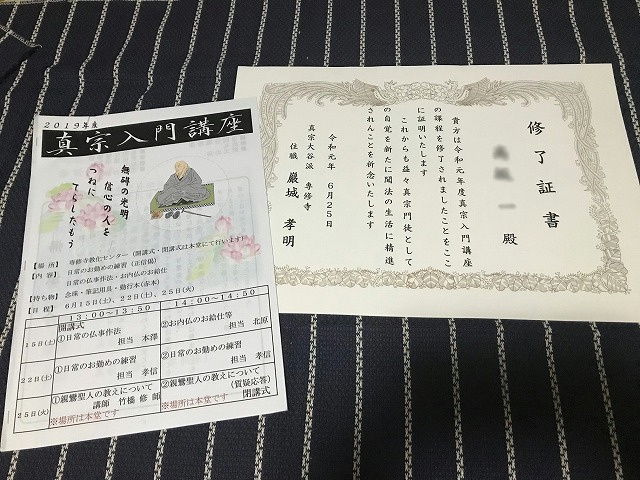 2019年度
真宗入門講座
無碍の光明
信心の人を
つねに
てらしたもう
【場所】 専修寺教化センター（開講式・閉講式は本堂にて行います）
【内容】 日常のお勤めの練習（正信偈）
日常の仏事作法・お内仏のお給仕
【持ち物】 念珠・筆記用具・勤行本(赤本)
【日程】 6月15日(土)、22日(土)、25日(火)
13：00～13：50
14：00～14：50
15日(土)
開講式
①日常の仏事作法
担当 本澤
②お内仏のお給仕等
担当 北原
22日(土)
①日常のお勤めの練習
担当 孝信
②日常のお勤めの練習
担当 孝信
25日(火)
①親鸞聖人の教えについて
講師 竹橋 修 師
※場所は本堂です
②親鸞聖人の教えについて
(質疑応答)
閉講式
※場所は本堂です
修了証書
一 殿
貴方は令和元年度真宗入門講座
の課程を修了されましたことをここ
に証明いたします
これからも益々真宗門徒として
の自覚を新たに聞法の生活に精進
されんことを祈念いたします
令和元年 6月25日
真宗大谷派 専修寺
住職 巖城 孝明